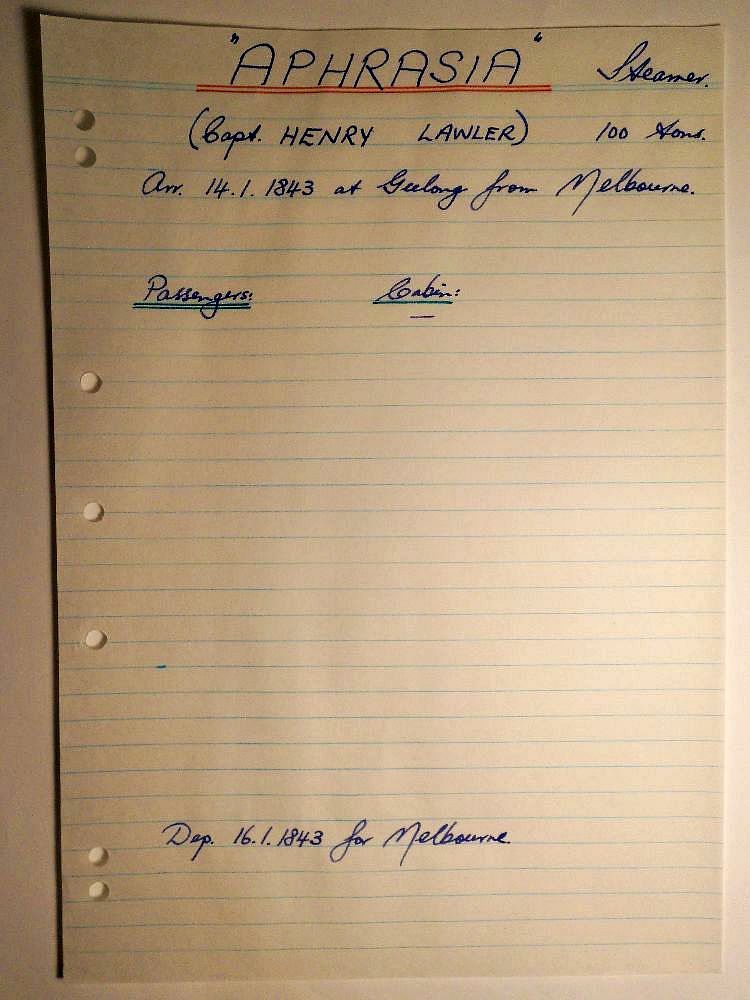 "APHRASIA" Steamer.
(Capt. HENRY LAWLER) 100 tons.
Arr. 14.1.1843 at Geelong from Melbourne.
Passengers: Cabin:
—
Dep. 16.1.1843 for Melbourne.